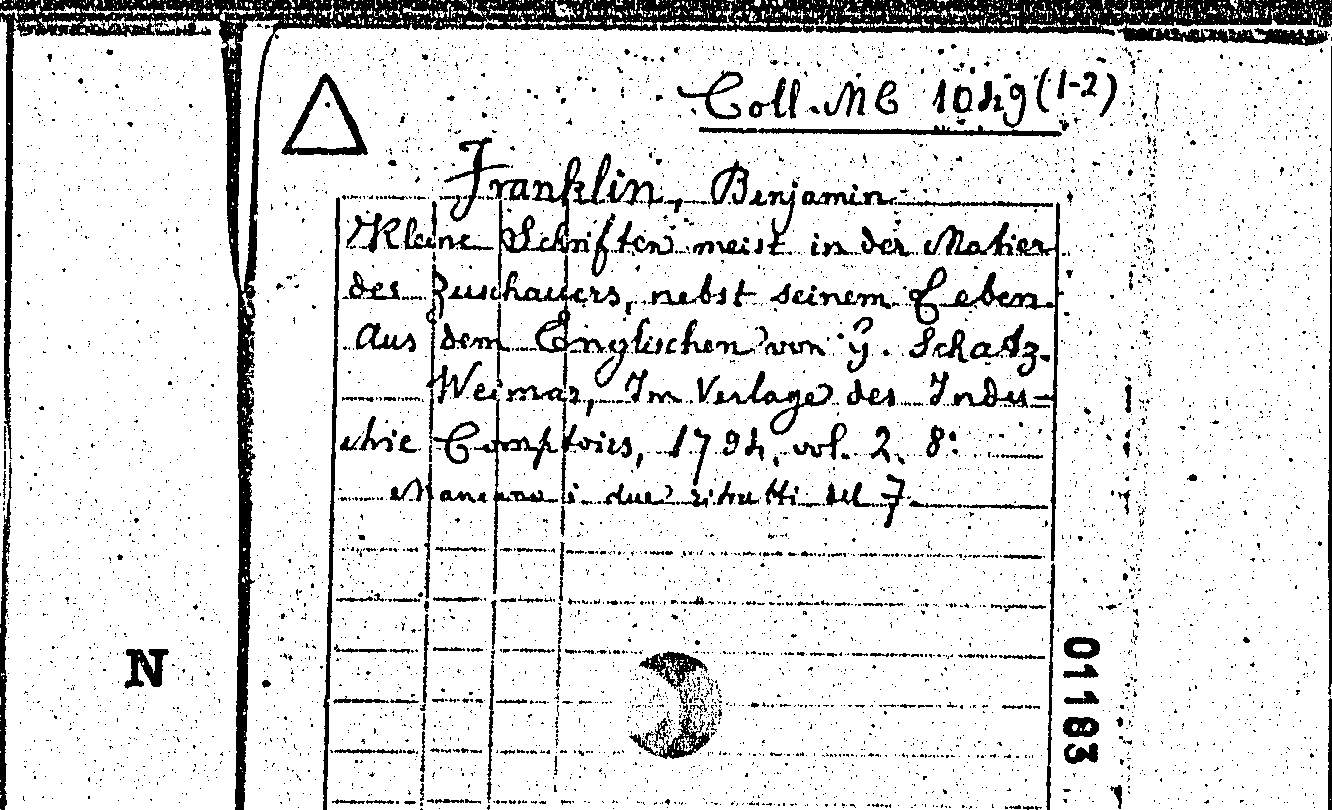 Coll. MC 1049 (1-2)
Franklin, Benjamin
Kleine Schriften meist in der Manier
des Zuschauers, nebst seinem Leben.
Aus dem Englischen von G. Schatz.
Weimar, Im Verlage des Indu-
strie Comptoirs, 1794, vol. 2. 8:
Mancano i due ritratti del F.
N
01183